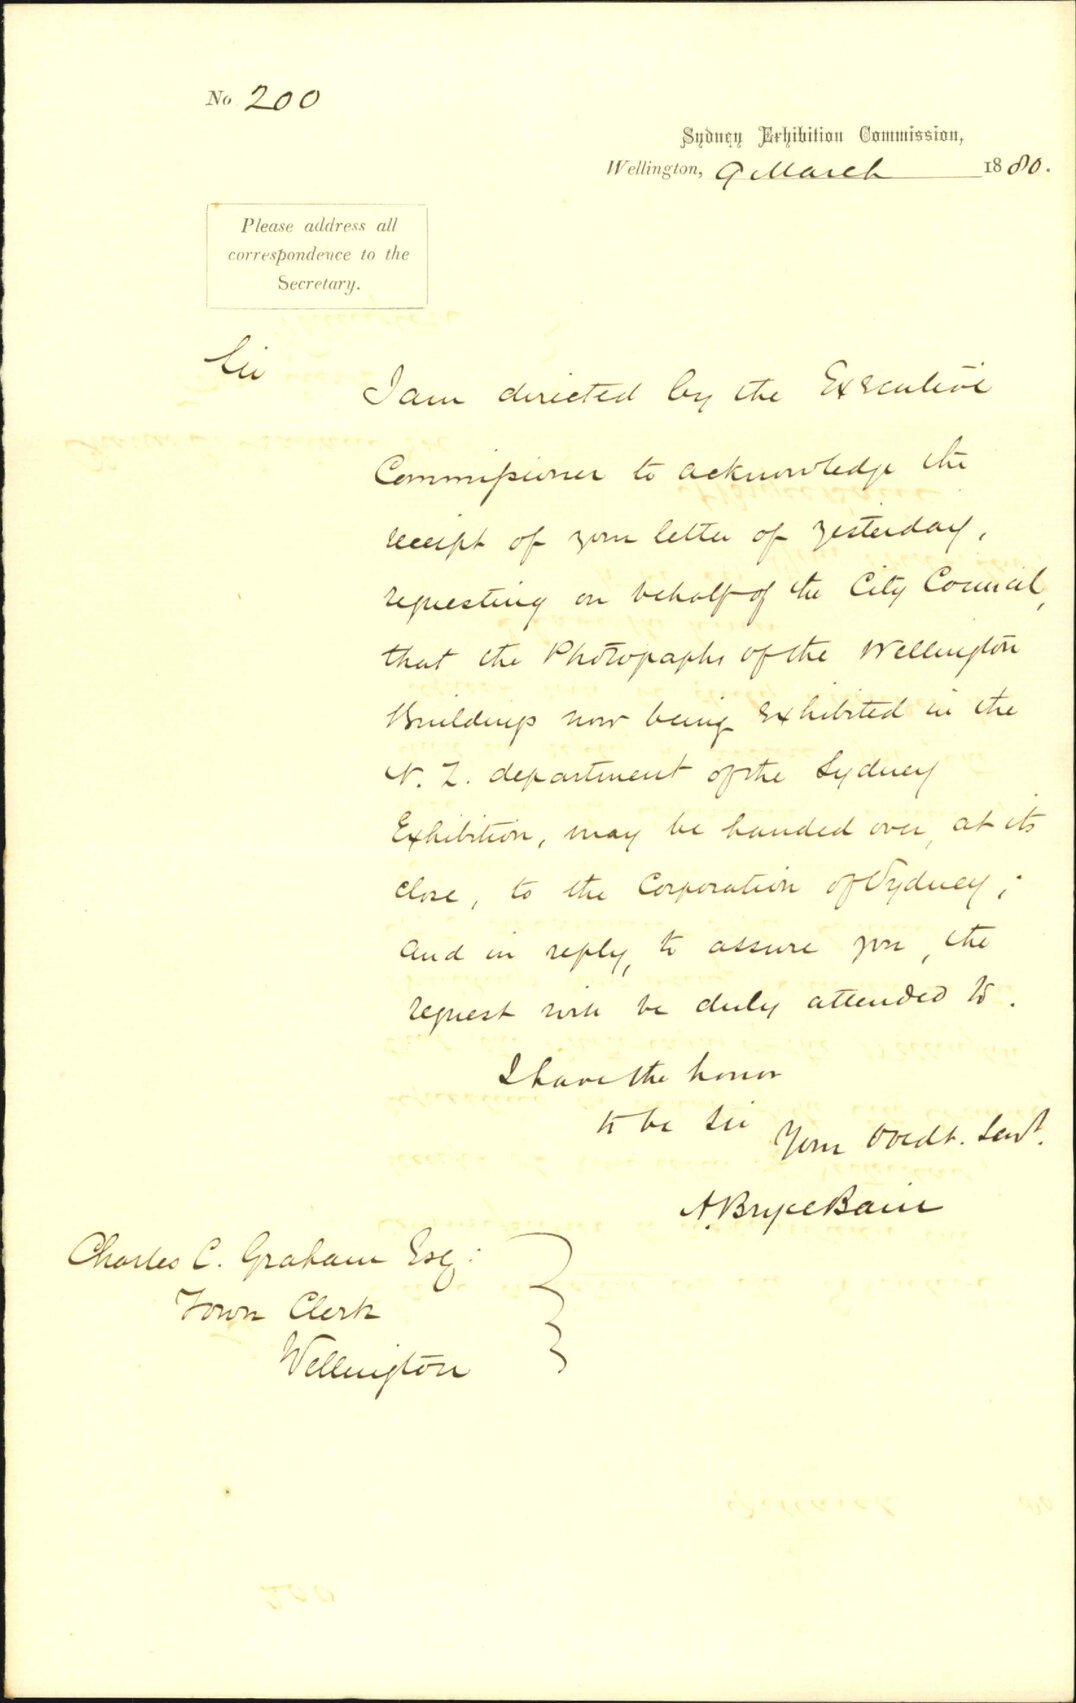 No 200
Sydney Exhibition Commission,
Wellington, 9 March 1880.
Please address all
correspondence to the
Secretary.
Sir
I am directed by the Executive
Commissioner to acknowledge the
receipt of your letter of yesterday,
requesting on behalf of the City Council,
that the Photographs of the Wellington
Buildings now being exhibited in the
N. Z. department of the Sydney
Exhibition, may be handed over, at its
close, to the Corporation of Sydney;
and in reply, to assure you, the
request will be duly attended to.
I have the honor
to be Sir
Your Obedt. Servt.
A. Bryce Bain
Charles C. Graham Esq:
Town Clerk
Wellington